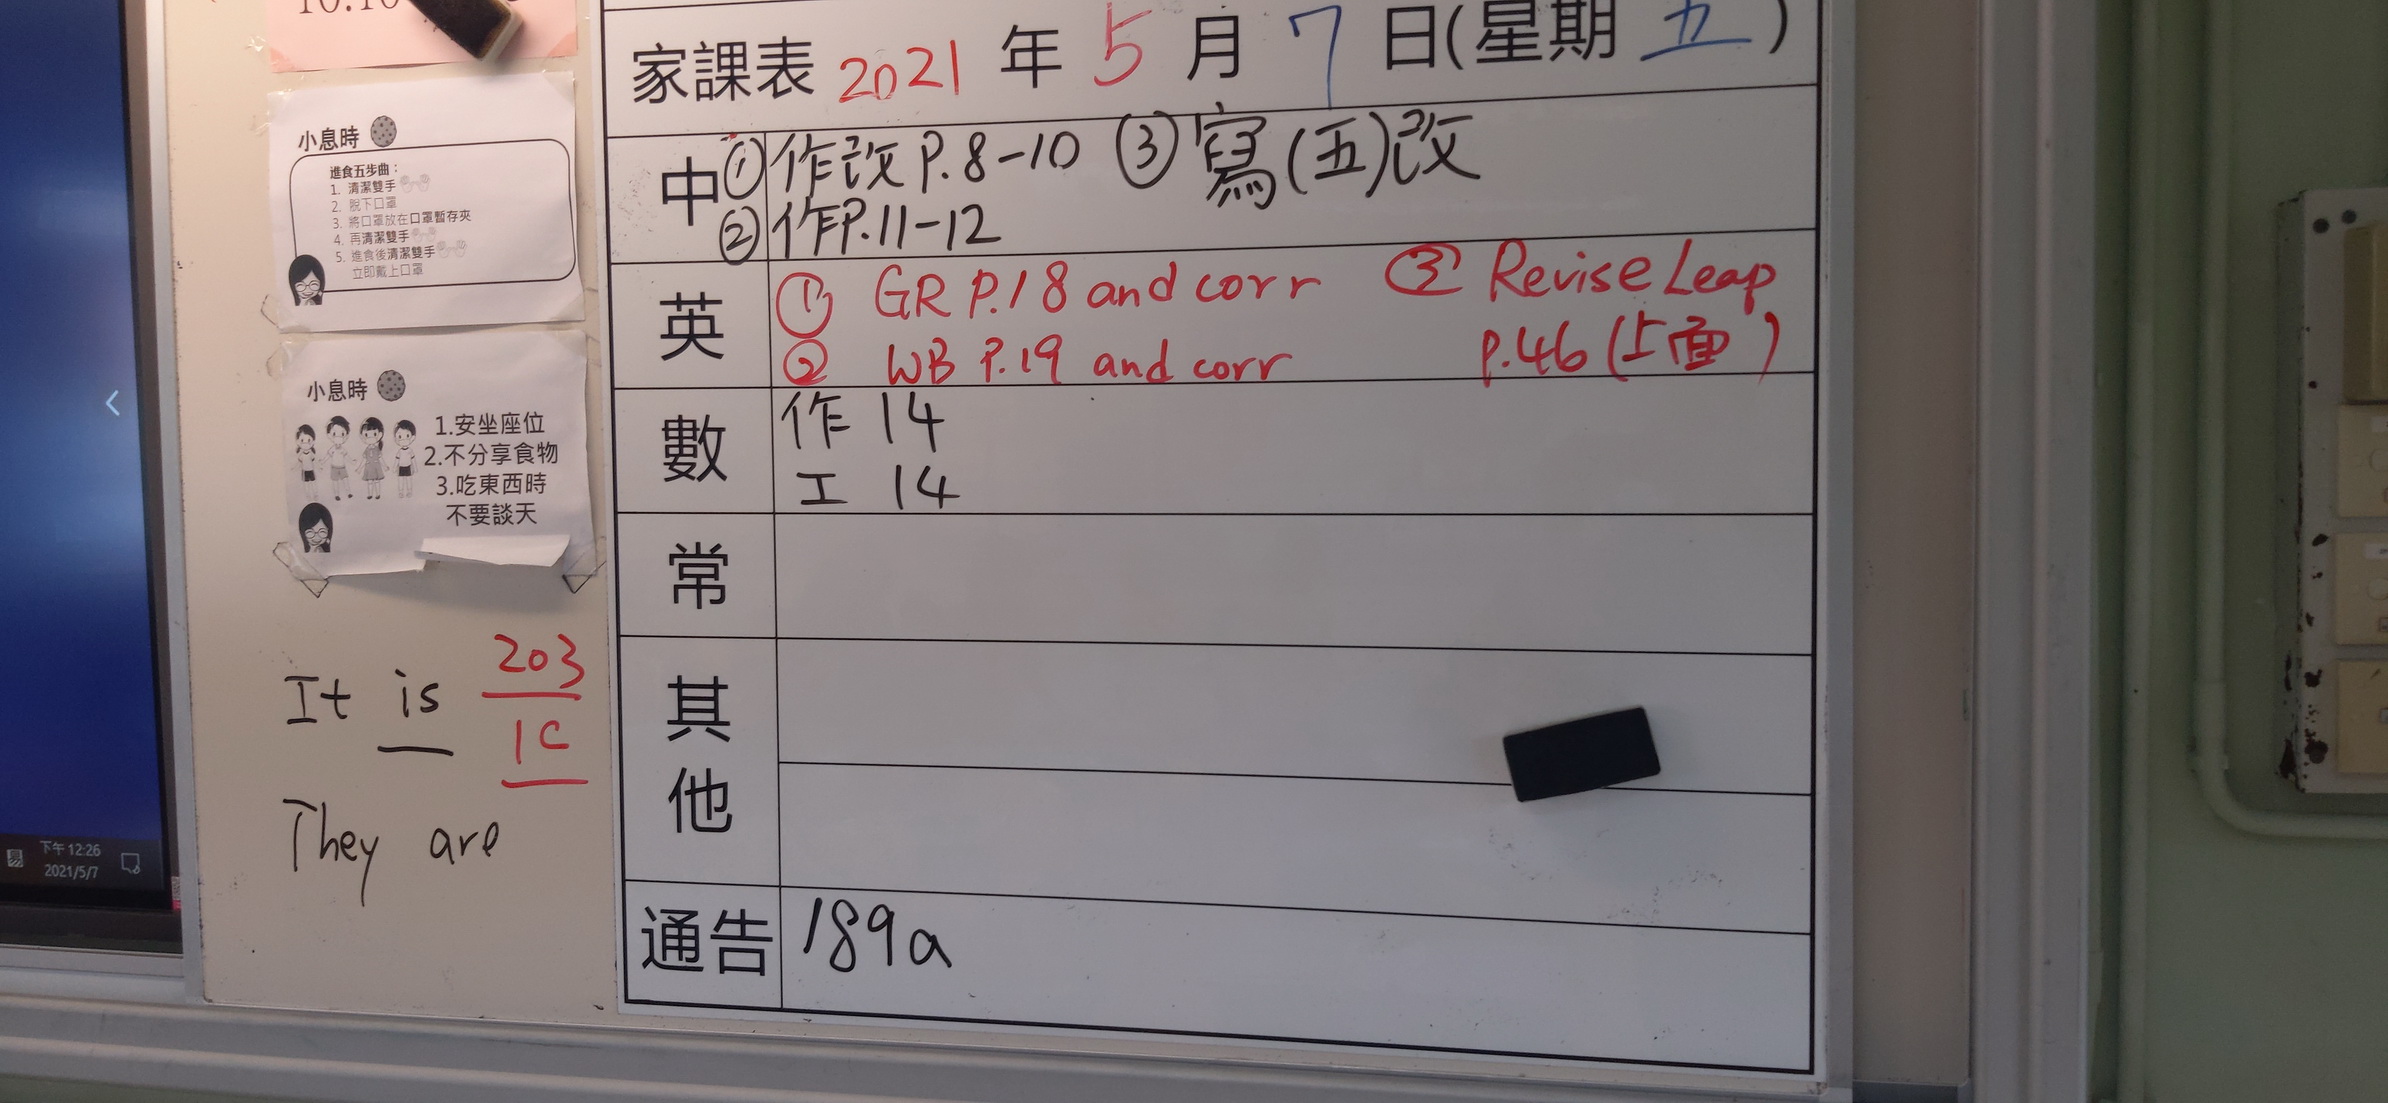 小息時
進食五步曲：
1. 清潔雙手
2. 脫下口罩
3. 將口罩放在口罩暫存夾
4. 再清潔雙手
5. 進食後清潔雙手
立即戴上口罩
小息時
1.安坐座位
2.不分享食物
3.吃東西時
不要談天
It is 203
1C
They are
下午 12:26
2021/5/7
家課表 2021 年 5 月 7 日(星期 五)
中 ① 作改 P.8-10 ③ 寫(五)改
② 作P.11-12
英 ① GR P.18 and corr ③ Revise Leap
② WB P.19 and corr P.46 (上面)
數 作 14
工 14
常
其他
通告 189a